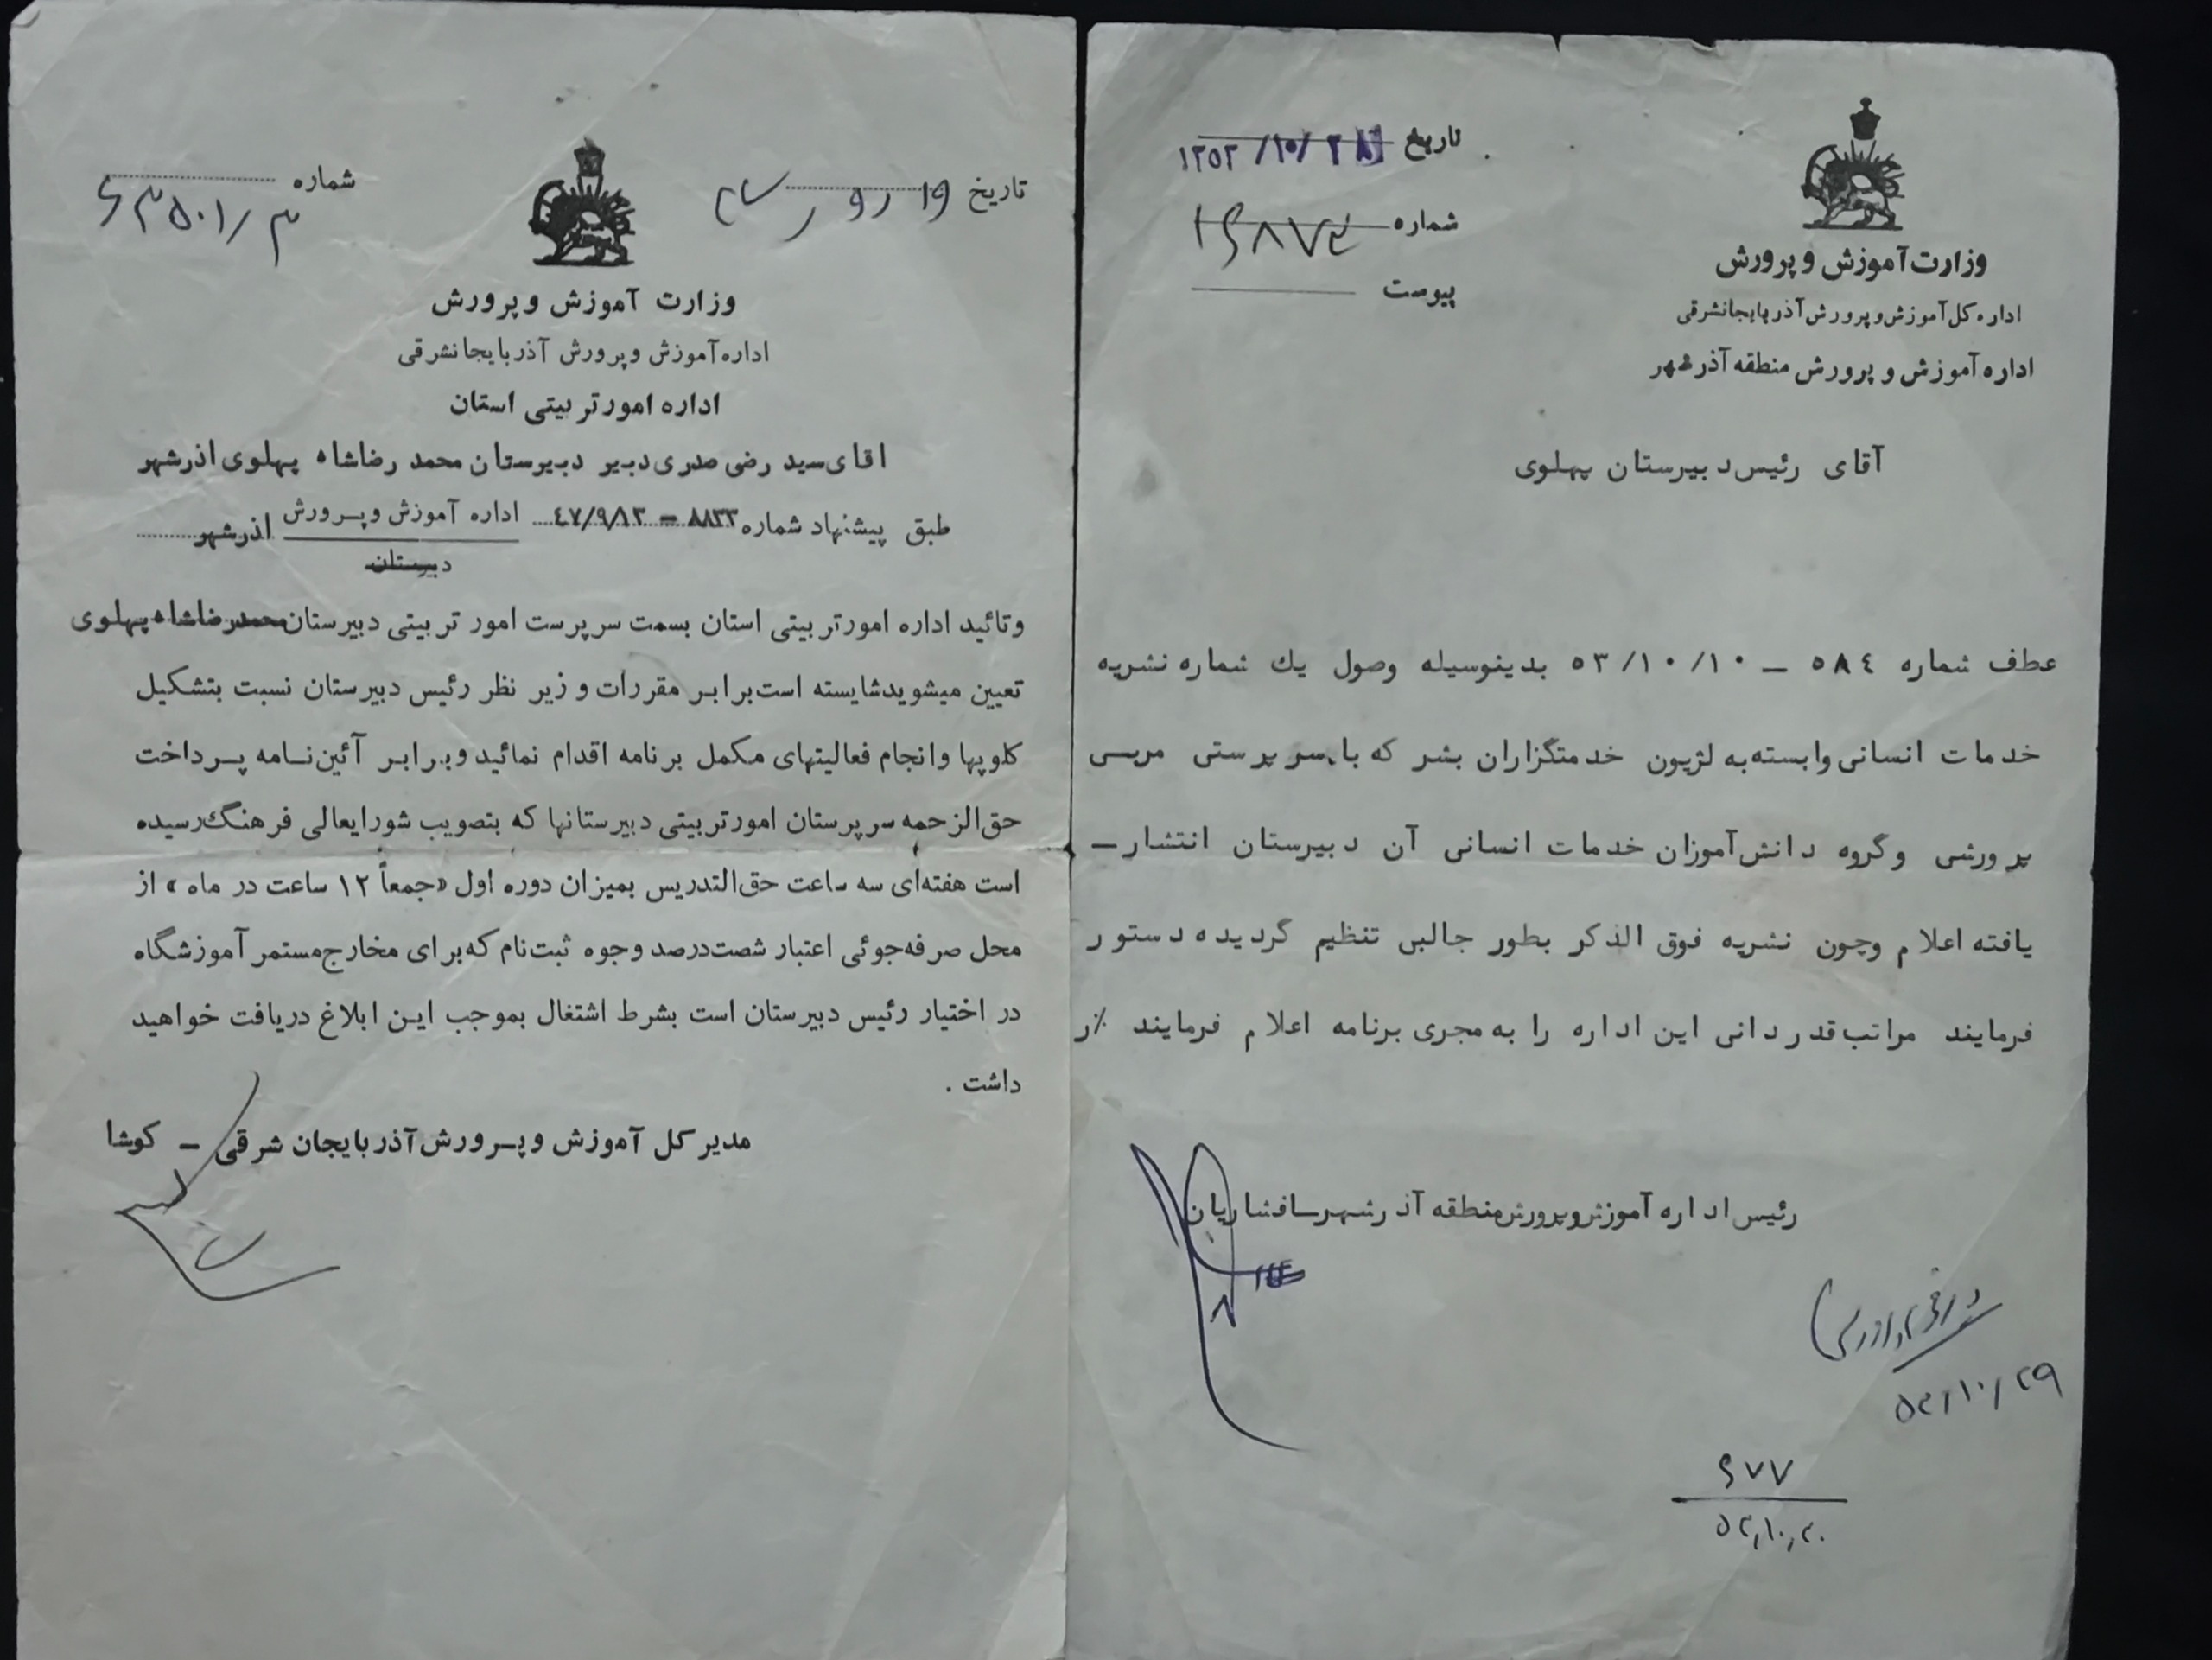 تاریخ ۱۳۵۳/۱۰/۲۸
شماره ۱۶۸۷۴
پیوست
وزارت آموزش و پرورش
اداره کل آموزش و پرورش آذربایجانشرقی
اداره آموزش و پرورش منطقه آذرشهر
آقای رئیس دبیرستان پهلوی
عطف شماره ۵۸٤ ـ ۵۳/۱۰/۱۰ بدینوسیله وصول یك شماره نشریه
خدمات انسانی وابسته به لژیون خدمتگزاران بشر که با سرپرستی مربی
پرورشی و گروه دانش‌آموزان خدمات انسانی آن دبیرستان انتشار ـ
یافته اعلام وچون نشریه فوق الذکر بطور جالبی تنظیم گردیده دستور
فرمایند مراتب قدردانی این اداره را به مجری برنامه اعلام فرمایند ٪ر
رئیس اداره آموزش وپرورش منطقه آذرشهر ـ افشاریان
۵۳/۱۰/۲۹
۶۷۷
۵۳,۱۰,۳۰
شماره ۶۳۵۰۱/۳
تاریخ ۱۹ ر ۹ ر ۴۷
وزارت آموزش و پرورش
اداره آموزش و پرورش آذربایجانشرقی
اداره امور تربیتی استان
اقای سید رضی صدری دبیر دبیرستان محمد رضاشاه پهلوی اذرشهر
طبق پیشنهاد شماره ۸۸۳۳ ـ ٤۷/۹/۱۳ اداره آموزش و پرورش اذرشهر
دبیرستان
وتائید اداره امورتربیتی استان بسمت سرپرست امور تربیتی دبیرستان محمدرضاشاه پهلوی
تعیین میشوید شایسته است برابر مقررات و زیر نظر رئیس دبیرستان نسبت بتشکیل
کلوپها و انجام فعالیتهای مکمل برنامه اقدام نمائید و برابر آئین‌نامه پرداخت
حق‌الزحمه سرپرستان امورتربیتی دبیرستانها که بتصویب شورایعالی فرهنگ رسیده
است هفته‌ای سه ساعت حق‌التدریس بمیزان دوره اول «جمعاً ۱۲ ساعت در ماه» از
محل صرفه‌جوئی اعتبار شصت‌درصد وجوه ثبت‌نام که برای مخارج مستمر آموزشگاه
در اختیار رئیس دبیرستان است بشرط اشتغال بموجب این ابلاغ دریافت خواهید
داشت .
مدیر کل آموزش و پرورش آذربایجان شرقی ـ کوشا